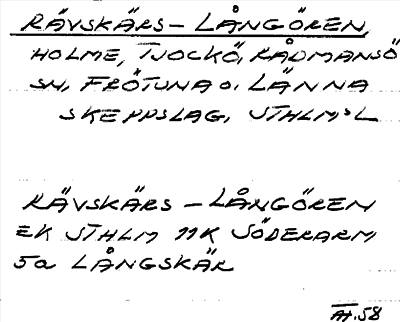 RÄVSKÄRS-LÅNGÖREN
HOLME, TJOCKÖ, RÅDMANSÖ
SN, FRÖTUNA O. LÄNNA
SKEPPSLAG, STHLMS L
RÄVSKÄRS-LÅNGÖREN
EK STHLM 11K SÖDERARM
5a LÅNGSKÄR
.58